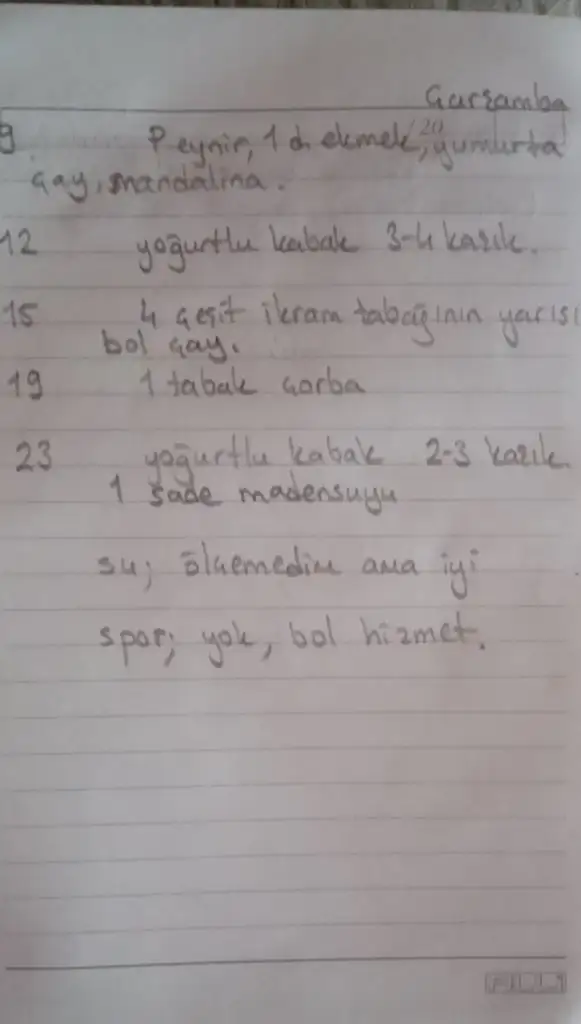 Çarşamba
9 Peynir, 1 d. ekmek, 20 yumurta
çay, mandalina.
12 yoğurtlu kabak 3-4 kaşık.
15 4 çeşit ikram tabağının yarısı
bol çay.
19 1 tabak çorba
23 yoğurtlu kabak 2-3 kaşık
1 sade madensuyu
su; ölçmedim ama iyi
spor; yok, bol hizmet.